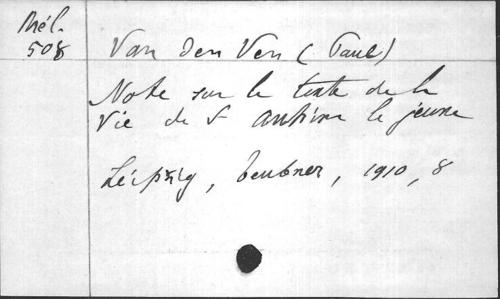 Mél.
508
Van den Ven (Paul)
Note sur le texte de la
Vie de St Antoine le jeune
Leipzig, Teubner, 1910, 8